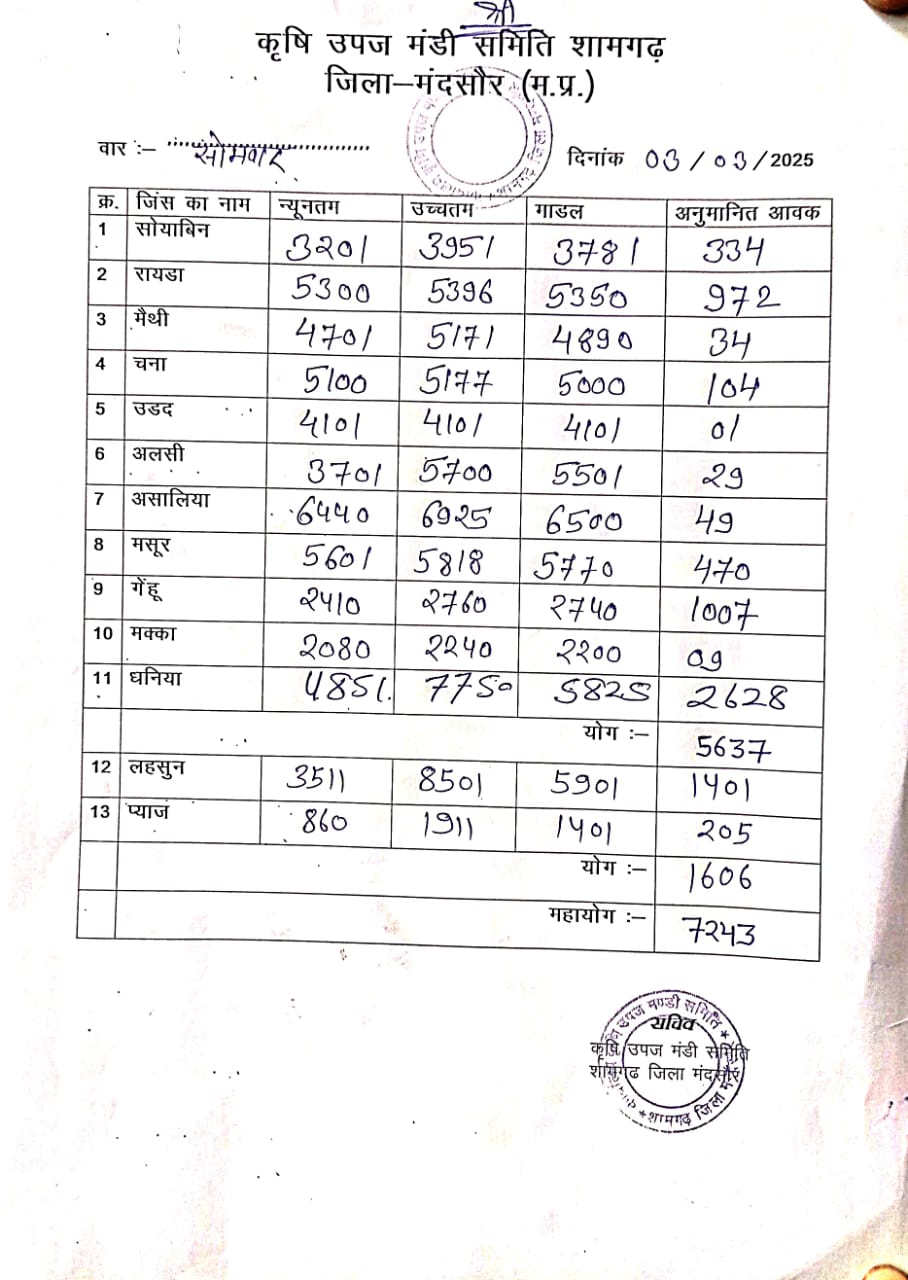 श्री
कृषि उपज मंडी समिति शामगढ़
जिला–मंदसौर (म.प्र.)
वार :– सोमवार दिनांक 03/03/2025
क्र. जिंस का नाम न्यूनतम उच्चतम माडल अनुमानित आवक
1 सोयाबिन 3201 3951 3781 334
2 रायडा 5300 5396 5350 972
3 मैथी 4701 5171 4890 34
4 चना 5100 5177 5000 104
5 उडद 4101 4101 4101 01
6 अलसी 3701 5700 5501 29
7 असालिया 6440 6925 6500 49
8 मसूर 5601 5818 5770 470
9 गेंहू 2410 2760 2740 1007
10 मक्का 2080 2240 2200 09
11 धनिया 4851 7750 5825 2628
योग :– 5637
12 लहसुन 3511 8501 5901 1401
13 प्याज 860 1911 1401 205
योग :– 1606
महायोग :– 7243
सचिव
कृषि उपज मंडी समिति
शामगढ जिला मंदसौर